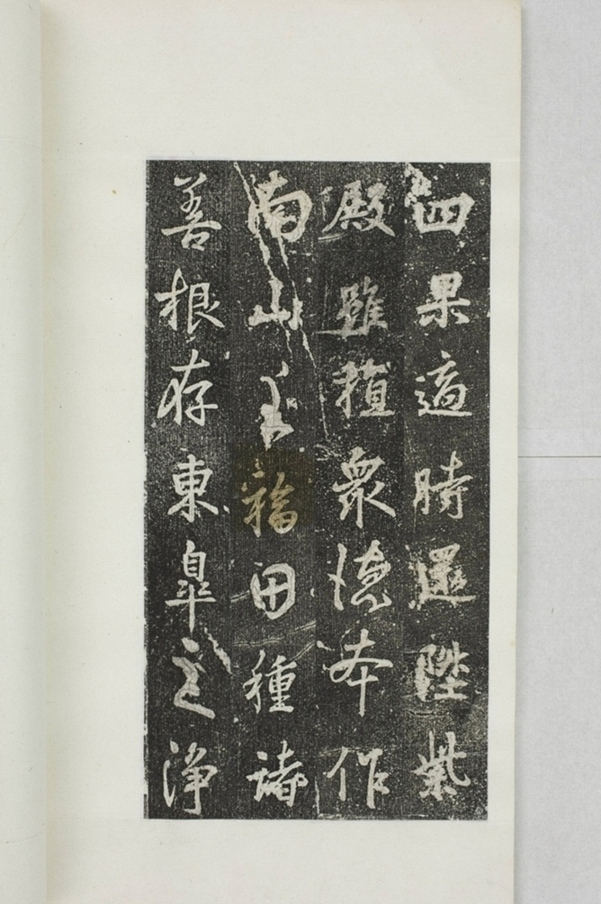 四果適時還陛紫
殿雖植衆德本作
南山之福田種諸
善根存東皐之浄